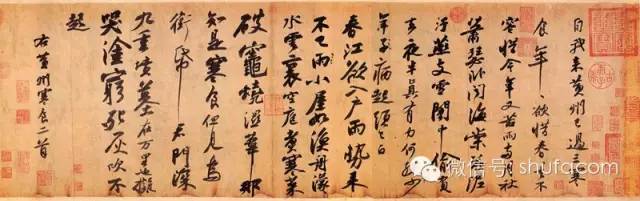 自我來黃州已過三寒
食年〻欲惜春〻去不
容惜今年又苦雨兩月秋
蕭瑟臥聞海棠花泥
汙燕支雪闇中偷負
去夜半真有力何殊少
年子病起頭已白
春江欲入戶雨勢來
不已雨小屋如漁舟濛〻
水雲裏空庖煮寒菜
破竈燒濕葦那
知是寒食但見烏
銜帋君門深
九重墳墓在万里也擬
哭塗窮死灰吹不
起
右黃州寒食二首
微信号: